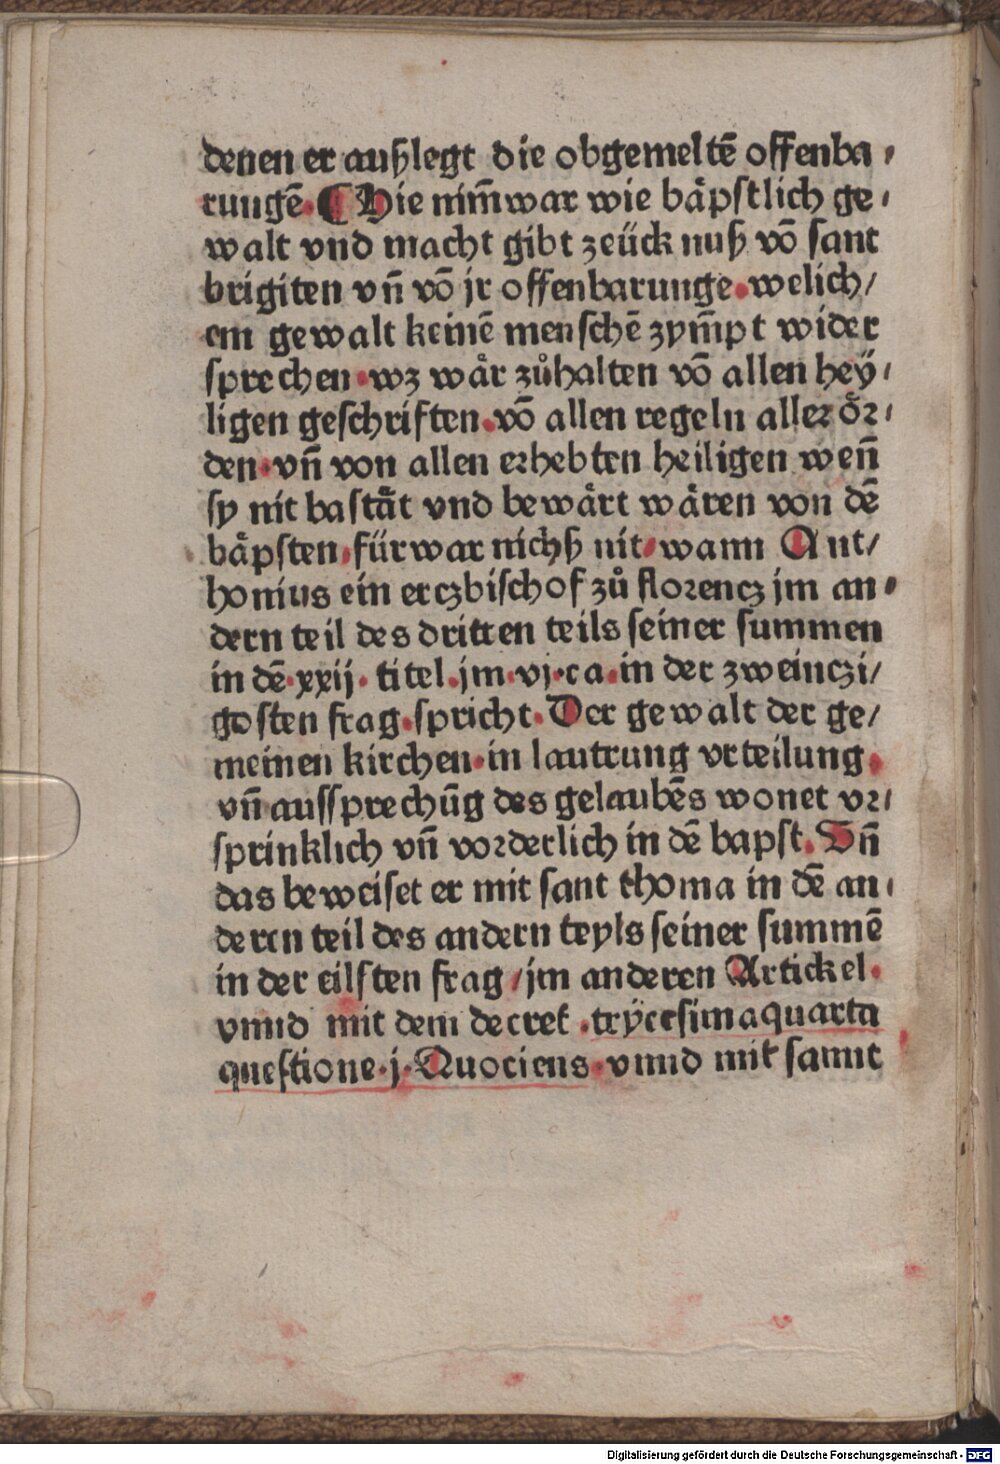 denen er außlegt die obgemeltē offenba⸗
rungē. ¶ Hie nim̄war wie bäpstlich ge⸗
walt vnd macht gibt zeück nuß vō sant
brigiten vn̄ vō jr offenbarunge. welich/
em gewalt keinē menschē zym̄pt wider
sprechen. wz wär zůhalten vō allen hey⸗
ligen geschriften. vō allen regeln aller ör⸗
den. vn̄ von allen erhebten heiligen wen̄
sy nit bastät vnd bewärt wären von dē
bäpsten, fürwar nichß nit, wann Ant/
honius ein erczbischof zů florencz jm an⸗
dern teil des dritten teils seiner summen
in dē .xxij. titel. jm .vj. ca. in der zweinczi/
gosten frag. spricht. Der gewalt der ge/
meinen kirchen. in lautrung vrteilung.
vn̄ aussprechūg des gelaubēs wonet vr⸗
sprinklich vn̄ vorderlich in dē bapst. Vn̄
das beweiset er mit sant thoma in dē an⸗
deren teil des andern teyls seiner summē
in der eilften frag / jm anderen Artickel.
vnnd mit dem decret .trycesimaquarta
questione .j. Quociens. vnnd mit sannt
Digitalisierung gefördert durch die Deutsche Forschungsgemeinschaft - DFG